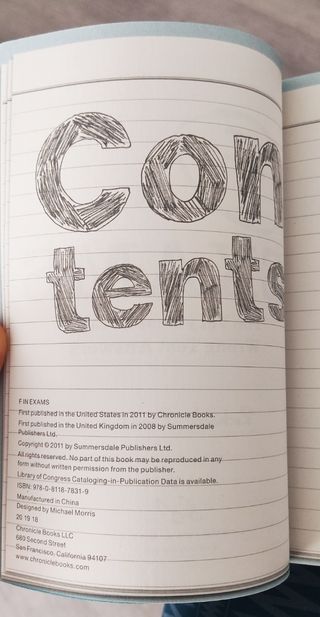 Con
tents
F IN EXAMS
First published in the United States in 2011 by Chronicle Books.
First published in the United Kingdom in 2008 by Summersdale
Publishers Ltd.
Copyright © 2011 by Summersdale Publishers Ltd.
All rights reserved. No part of this book may be reproduced in any
form without written permission from the publisher.
Library of Congress Cataloging-in-Publication Data is available.
ISBN: 978-0-8118-7831-9
Manufactured in China
Designed by Michael Morris
20 19 18
Chronicle Books LLC
680 Second Street
San Francisco, California 94107
www.chroniclebooks.com